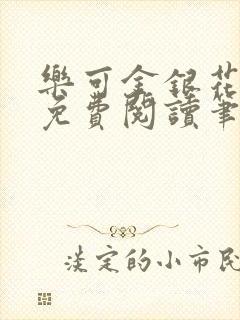 樂可金銀花
免費閱讀筆
淡定的小市民